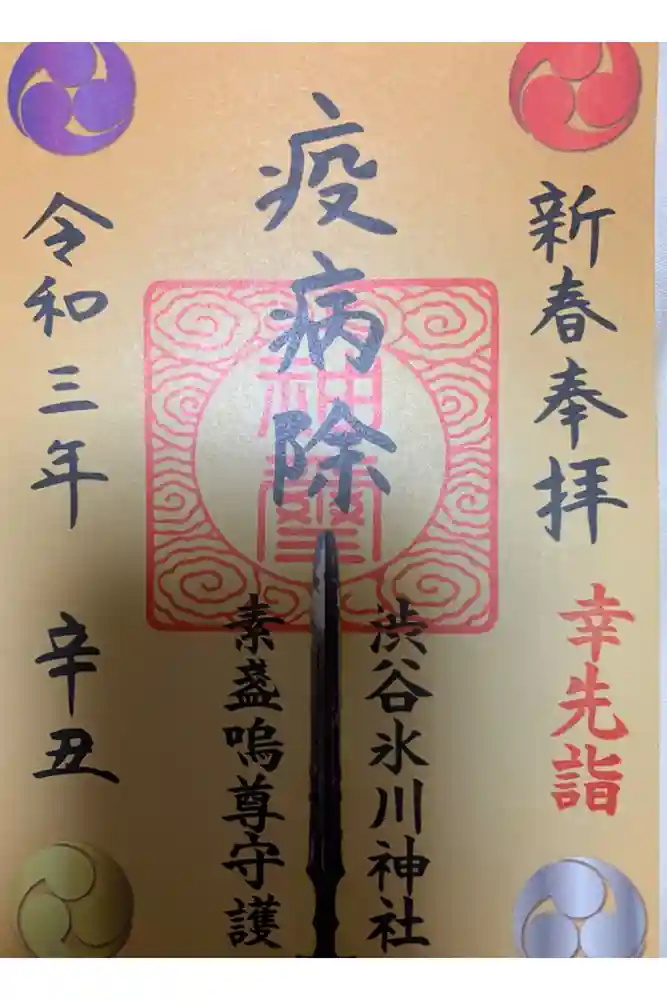 新春奉拝
幸先詣
疫病除
渋谷氷川神社
素盞嗚尊守護
令和三年
辛丑